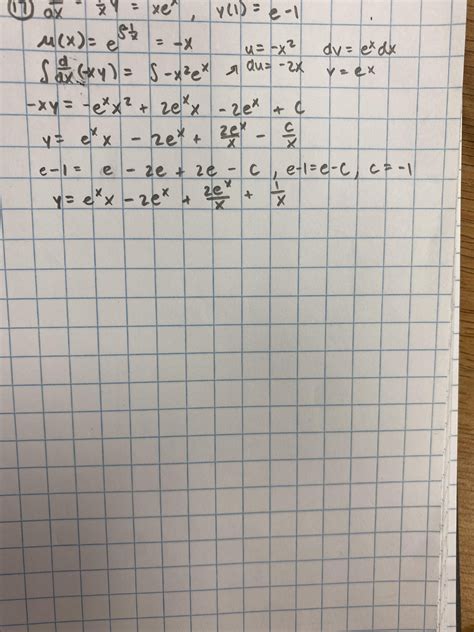 17) d/dx - 1/x y = xe^x, y(1) = e-1
μ(x) = e^∫-1/x = -x
u = -x² dv = e^x dx
∫ d/dx(-xy) = ∫ -x²e^x
du = -2x v = e^x
-xy = -e^x x² + 2e^x x - 2e^x + C
y = e^x x - 2e^x + 2e^x/x - C/x
e-1 = e - 2e + 2e - C, e-1 = e-C, C = -1
y = e^x x - 2e^x + 2e^x/x + 1/x